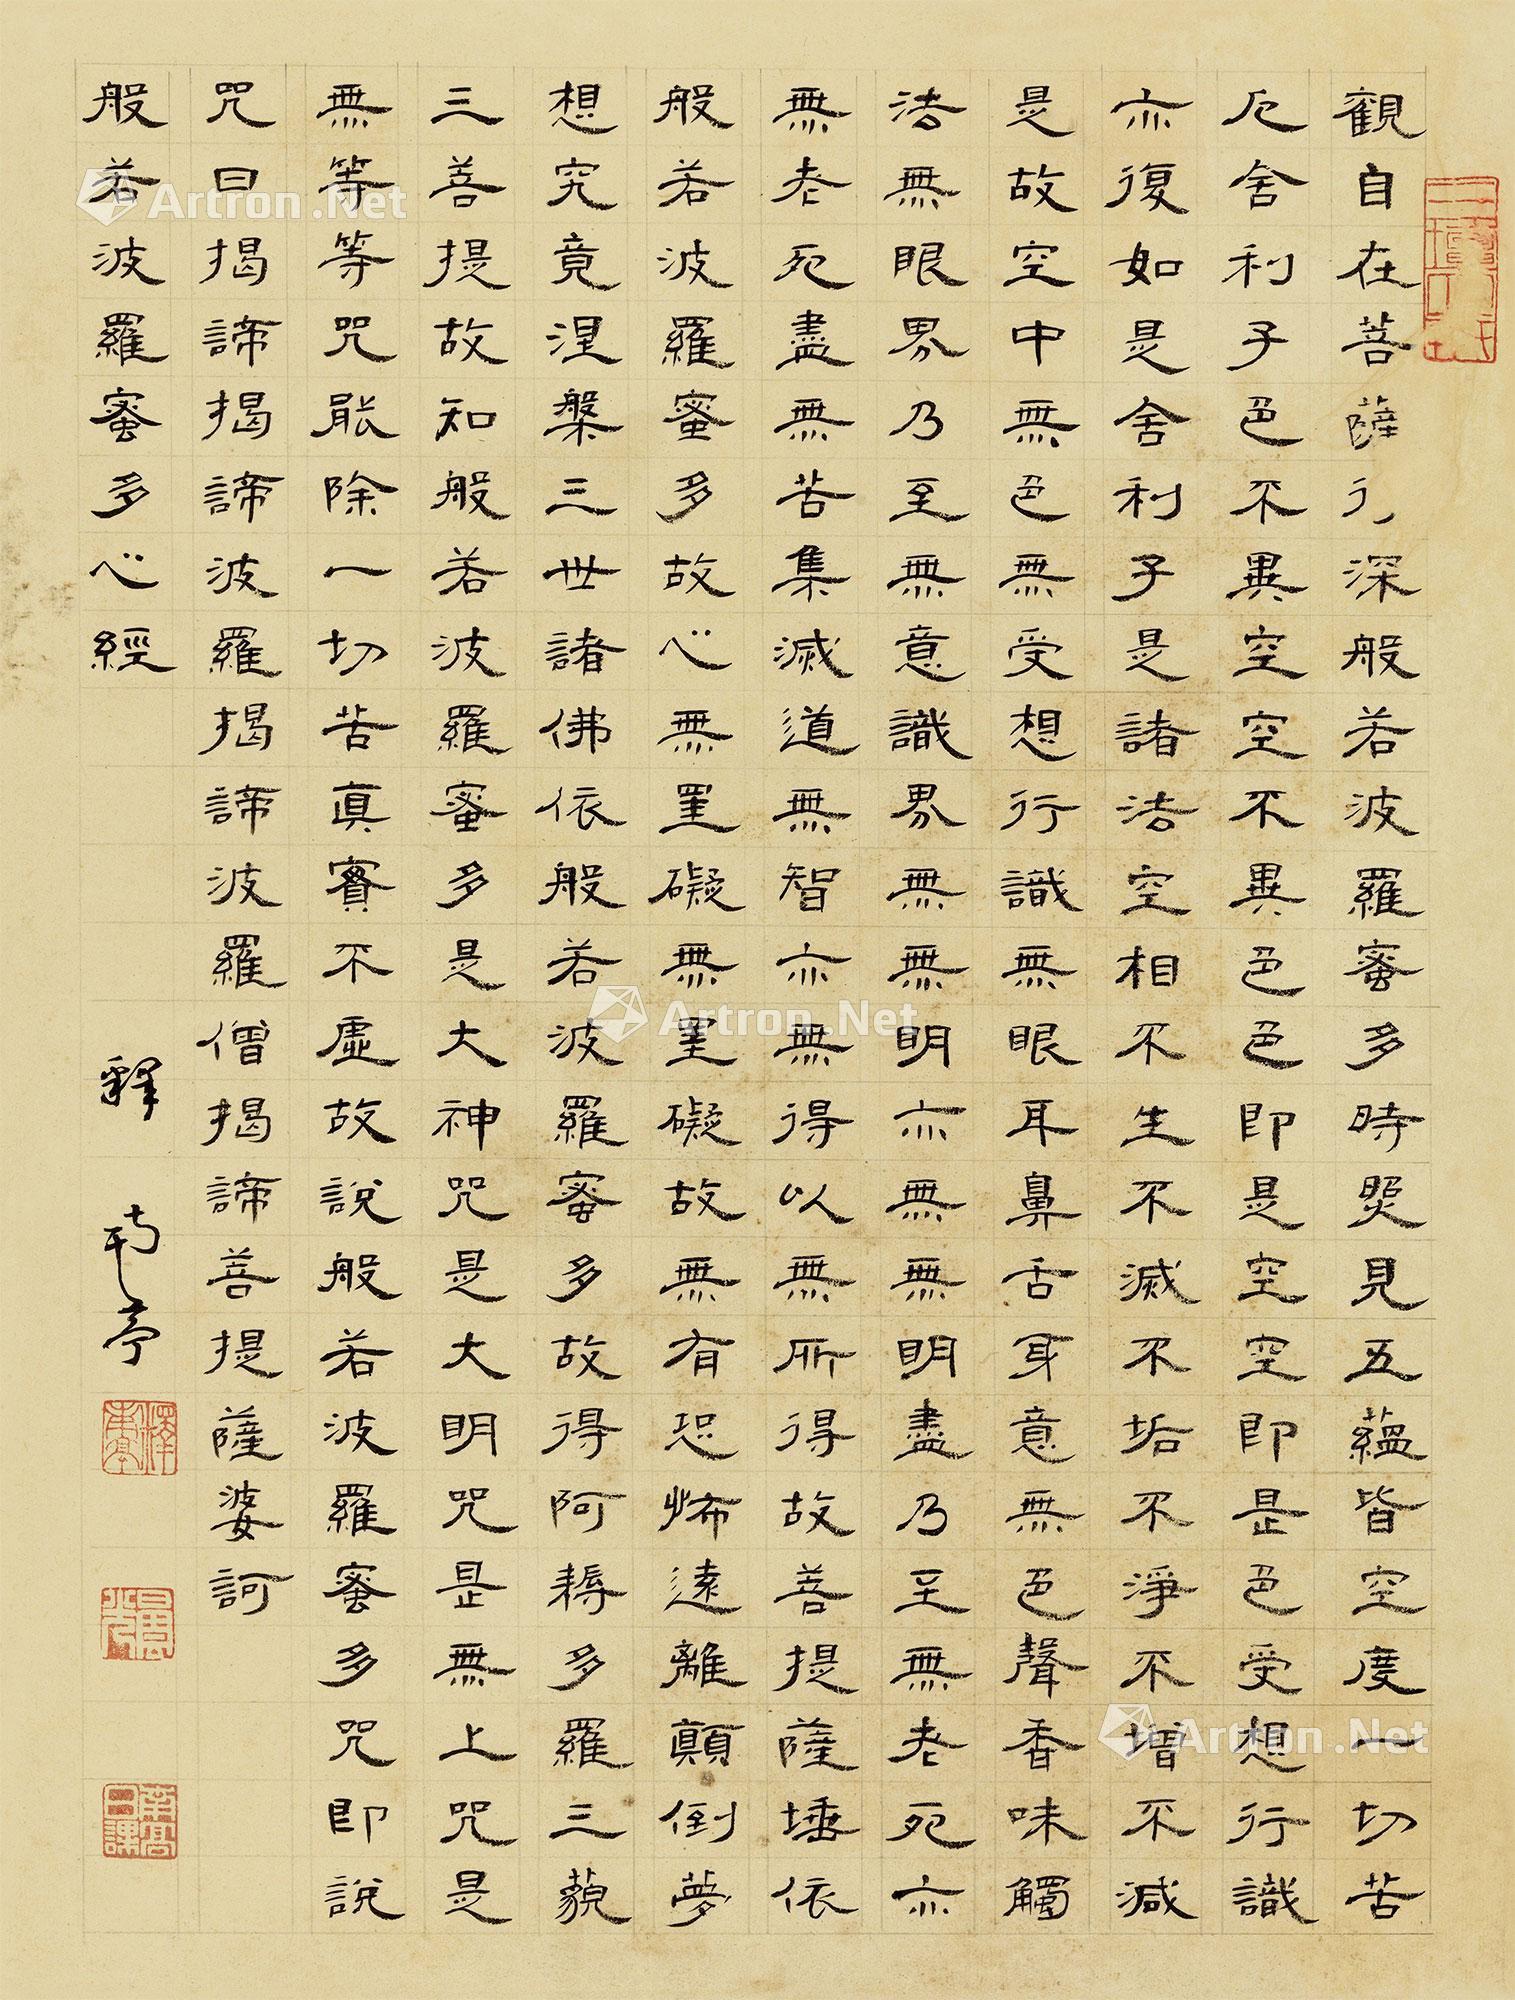 觀自在菩薩行深般若波羅蜜多時照見五蘊皆空度一切苦
厄舍利子色不異空空不異色色即是空空即是色受想行識
亦復如是舍利子是諸法空相不生不滅不垢不淨不增不減
是故空中無色無受想行識無眼耳鼻舌身意無色聲香味觸
法無眼界乃至無意識界無無明亦無無明盡乃至無老死亦
無老死盡無苦集滅道無智亦無得以無所得故菩提薩埵依
般若波羅蜜多故心無罣礙無罣礙故無有恐怖遠離顛倒夢
想究竟涅槃三世諸佛依般若波羅蜜多故得阿耨多羅三藐
三菩提故知般若波羅蜜多是大神咒是大明咒是無上咒是
無等等咒能除一切苦真實不虛故說般若波羅蜜多咒即說
咒曰揭諦揭諦波羅揭諦波羅僧揭諦菩提薩婆訶
般若波羅蜜多心經
釋南亭
Artron.Net
Artron.Net
Artron.Net